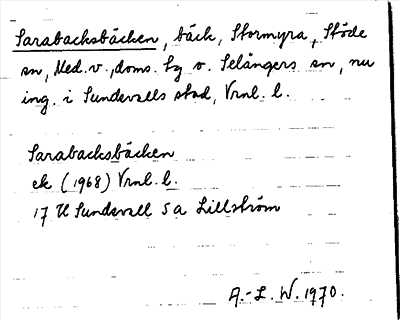 Sarabacksbäcken, bäck, Stormyra, Stöde
sn, Med. v., doms. tg o. Selångers sn, nu
ing. i Sundsvalls stad, Vrnl. l.
Sarabacksbäcken
ek (1968) Vrnl. l.
17 H Sundsvall 5a Lillström
A.-L. W. 1970.